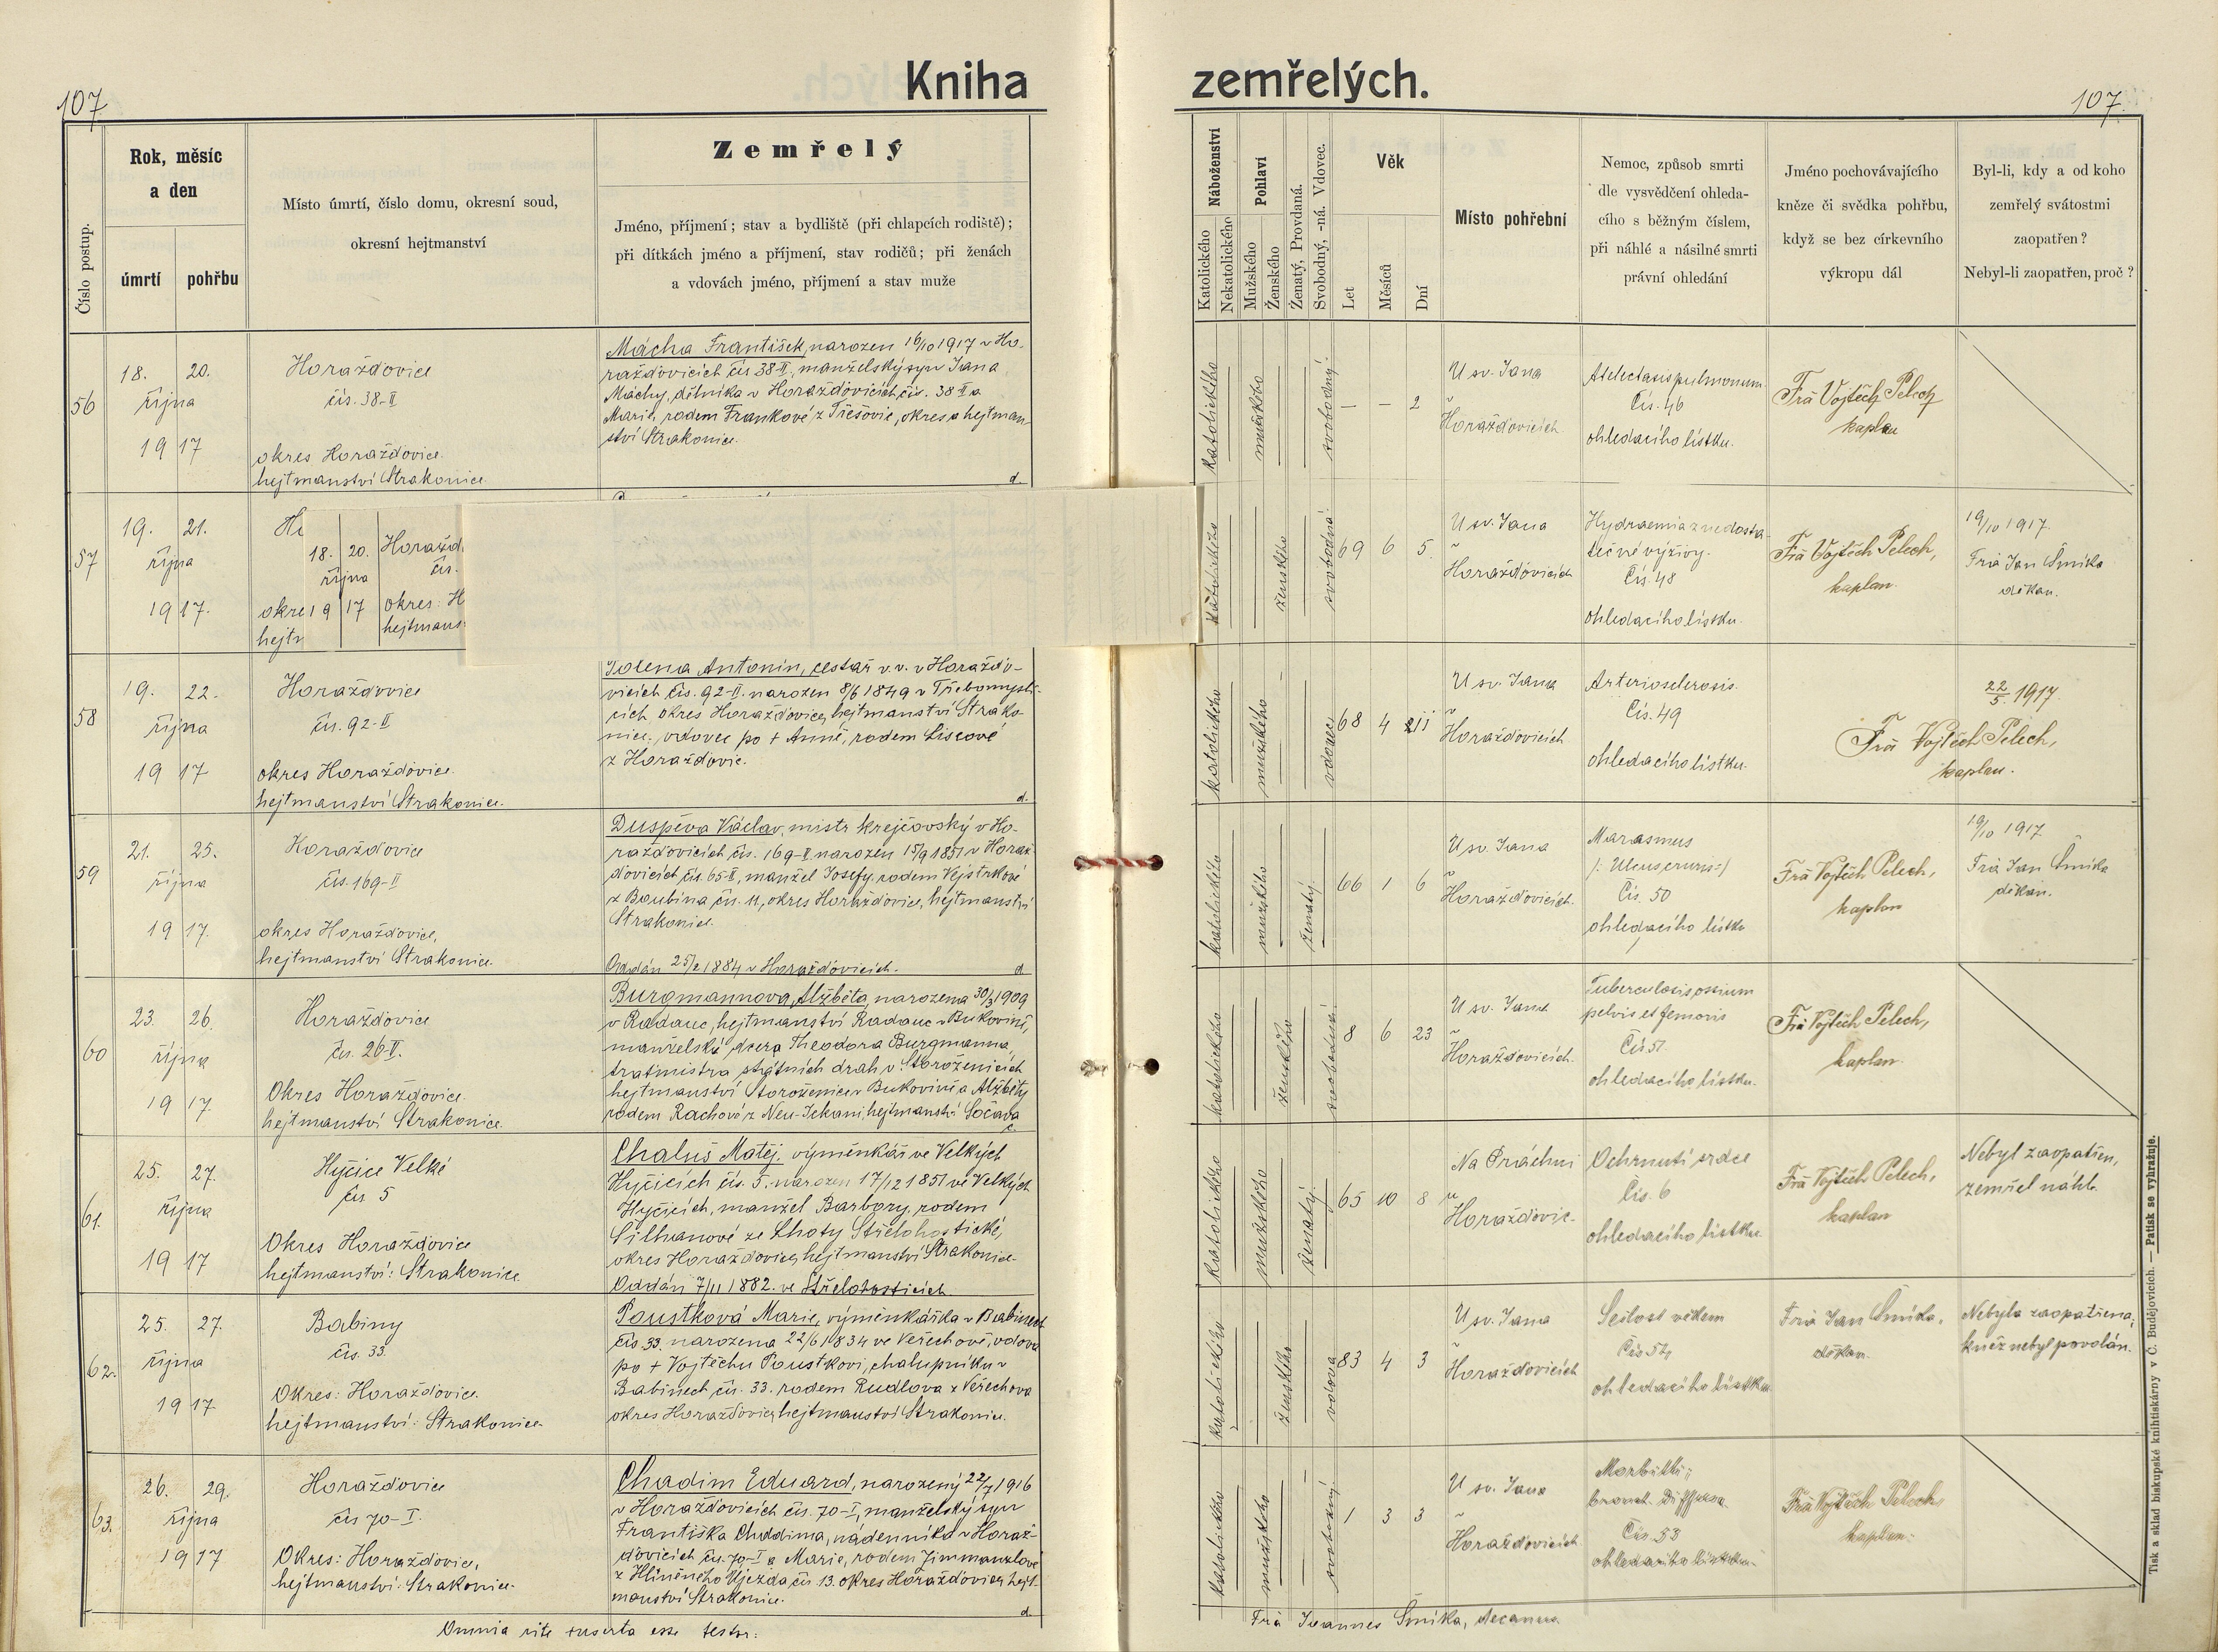 107.
Kniha
zemřelých.
107.
Číslo postup.
Rok, měsíc
a den
úmrtí
pohřbu
Místo úmrtí, číslo domu, okresní soud,
okresní hejtmanství
Zemřelý
Jméno, příjmení; stav a bydliště (při chlapcích rodiště);
při dítkách jméno a příjmení, stav rodičů; při ženách
a vdovách jméno, příjmení a stav muže
Náboženství
Katolického
Nekatolického
Pohlaví
Mužského
Ženského
Ženatý, Provdaná.
Svobodný, -ná. Vdovec.
Věk
Let
Měsíců
Dní
Místo pohřební
Nemoc, způsob smrti
dle vysvědčení ohleda-
cího s běžným číslem,
při náhlé a násilné smrti
právní ohledání
Jméno pochovávajícího
kněze či svědka pohřbu,
když se bez církevního
výkropu dál
Byl-li, kdy a od koho
zemřelý svátostmi
zaopatřen?
Nebyl-li zaopatřen, proč?
56
18. 20.
října
1917
Horažďovice
čís. 38-II
okres Horažďovice.
hejtmanství Strakonice.
Mácha František, narozen 16/10 1917 v Ho-
ražďovicích čís 38-II, manželský syn Jana
Máchy, dělníka v Horažďovicích, čís. 38 II a
Marie, rodem Frankové z Třešovic, okres a hejtman-
ství Strakonice.
d.
katolického
mužského
svobodný
– – 2
U sv. Jana
v
Horažďovicích
Atelectasis pulmonum
Čís. 46
ohledacího lístku.
Frà Vojtěch Pelech
kaplan
57
19. 21.
října
1917.
18. 20.
října
1917
Horažd
čís.
okres: H
hejtmans
katolického
ženského
svobodná
69 6 5.
U sv. Jana
v
Horažďovicích
Hydraemia z nedosta-
tečné výživy.
Čís. 48
ohledacího lístku.
Frà Vojtěch Pelech,
kaplan.
19/10 1917.
Frà Jan Šmíka
děkan.
58
19. 22.
října
1917
Horažďovice
čís. 92-II
okres Horažďovice.
hejtmanství Strakonice.
Antonín, cestář v. v. v Horažďo-
vicích čís. 92-II. narozen 8/6 1849 v Třebomysli-
cích okres Horažďovice, hejtmanství Strako-
nice, vdovec po + Anně, rodem Liscové
z Horažďovic.
d.
katolického
mužského
vdovec
68 4 11
U sv. Jana
v
Horažďovicích
Arteriosclerosis.
Čís. 49
ohledacího lístku.
22/5 1917.
Frà Vojtěch Pelech,
kaplan.
59
21. 25.
října
1917.
Horažďovice
čís. 169-II
okres Horažďovice,
hejtmanství Strakonice.
Duspěva Václav, mistr krejčovský v Ho-
ražďovicích čís. 169-II narozen 15/9 1851 v Horaž-
ďovicích čís. 65-II, manžel Josefy, rodem Vejstrkové
z Boubína čís. 11, okres Horažďovice, hejtmanství
Strakonice.
Oddán 25/2 1884 v Horažďovicích.
d
katolického
mužského
ženatý.
66 1 6
U sv. Jana
v
Horažďovicích.
Marasmus
/: Ulcus cruris :/
Čís. 50
ohledacího lístku
Frà Vojtěch Pelech,
kaplan
19/10 1917
Frà Jan Šmíka
děkan.
60
23. 26.
října
1917.
Horažďovice
čís. 26-II.
Okres Horažďovice.
hejtmanství Strakonice.
Burgmannova Alžběta, narozena 30/3 1909
v Radauc, hejtmanství Radauc v Bukovině,
manželská dcera Theodora Burgmanna,
tratmistra státních drah v Storoženicích
hejtmanství Storoženice v Bukovině, a Alžběty
rodem Rachové z Neu-Ickani, hejtmanství Sočava
katolického
ženského
svobodná
8 6 23
U sv. Jana
v
Horažďovicích.
Tuberculosis ossium
pelvis et femoris
Čís 51.
ohledacího lístku.
Frà Vojtěch Pelech,
kaplan.
61.
25. 27.
října
1917
Hyčice Velké
čís 5
Okres Horažďovice
hejtmanství: Strakonice
Chaluš Matěj. výměnkář ve Velkých
Hyčicích čís. 5. narozen 17/12 1851 ve Velkých
Hyčicích, manžel Barbory, rodem
Silhanové ze Lhoty Střelohostické,
okres Horažďovice, hejtmanství Strakonice.
Oddán 7/11 1882. ve Střelohosticích.
katolického
mužského
ženatý.
65 10 8
Na Práchni
u
Horažďovic.
Ochrnutí srdce
Čís. 6
ohledacího lístku
Frà Vojtěch Pelech,
kaplan
Nebyl zaopatřen,
zemřel náhle.
62.
25. 27.
října
1917
Babiny
čís. 33.
Okres: Horažďovice.
hejtmanství: Strakonice.
Poustková Marie, výměnkářka v Babinech
čís. 33. narozena 22/6 1834 ve Veřechově, vdova
po + Vojtěchu Poustkovi, chalupníku v
Babinech čís. 33. rodem Rudlova z Veřechova
okres Horažďovice, hejtmanství Strakonice.
katolického
ženského
vdova
83 4 3
U sv. Jana
v
Horažďovicích
Sešlost věkem
Čís 52
ohledacího lístku
Frà Jan Šmíka,
děkan.
Nebyla zaopatřena,
kněz nebyl povolán.
63.
26. 29.
října
1917
Horažďovice
čís 70-I.
Okres: Horažďovice,
hejtmanství: Strakonice.
Chadim Eduard, narozený 22/7 1916
v Horažďovicích čís. 70-I, manželský syn
Františka Chadima, nádenníka v Horaž-
ďovicích čís. 70-I a Marie, rodem Zimmanzlové
z Hliněného Újezda, čís 13. okres Horažďovice, hejt-
manství Strakonice.
d.
katolického
mužského
svobodný
1 3 3
U sv. Jana
v
Horažďovicích.
Morbilli;
bronch. diffusa.
Čís. 53
ohledacího lístku.
Frà Vojtěch Pelech
kaplan.
Omnia rite inserta esse testor:
Frà Joannes Šmíka, decanus.
Tisk a sklad biskupské knihtiskárny v Č. Budějovicích. — Patisk se vyhražuje.